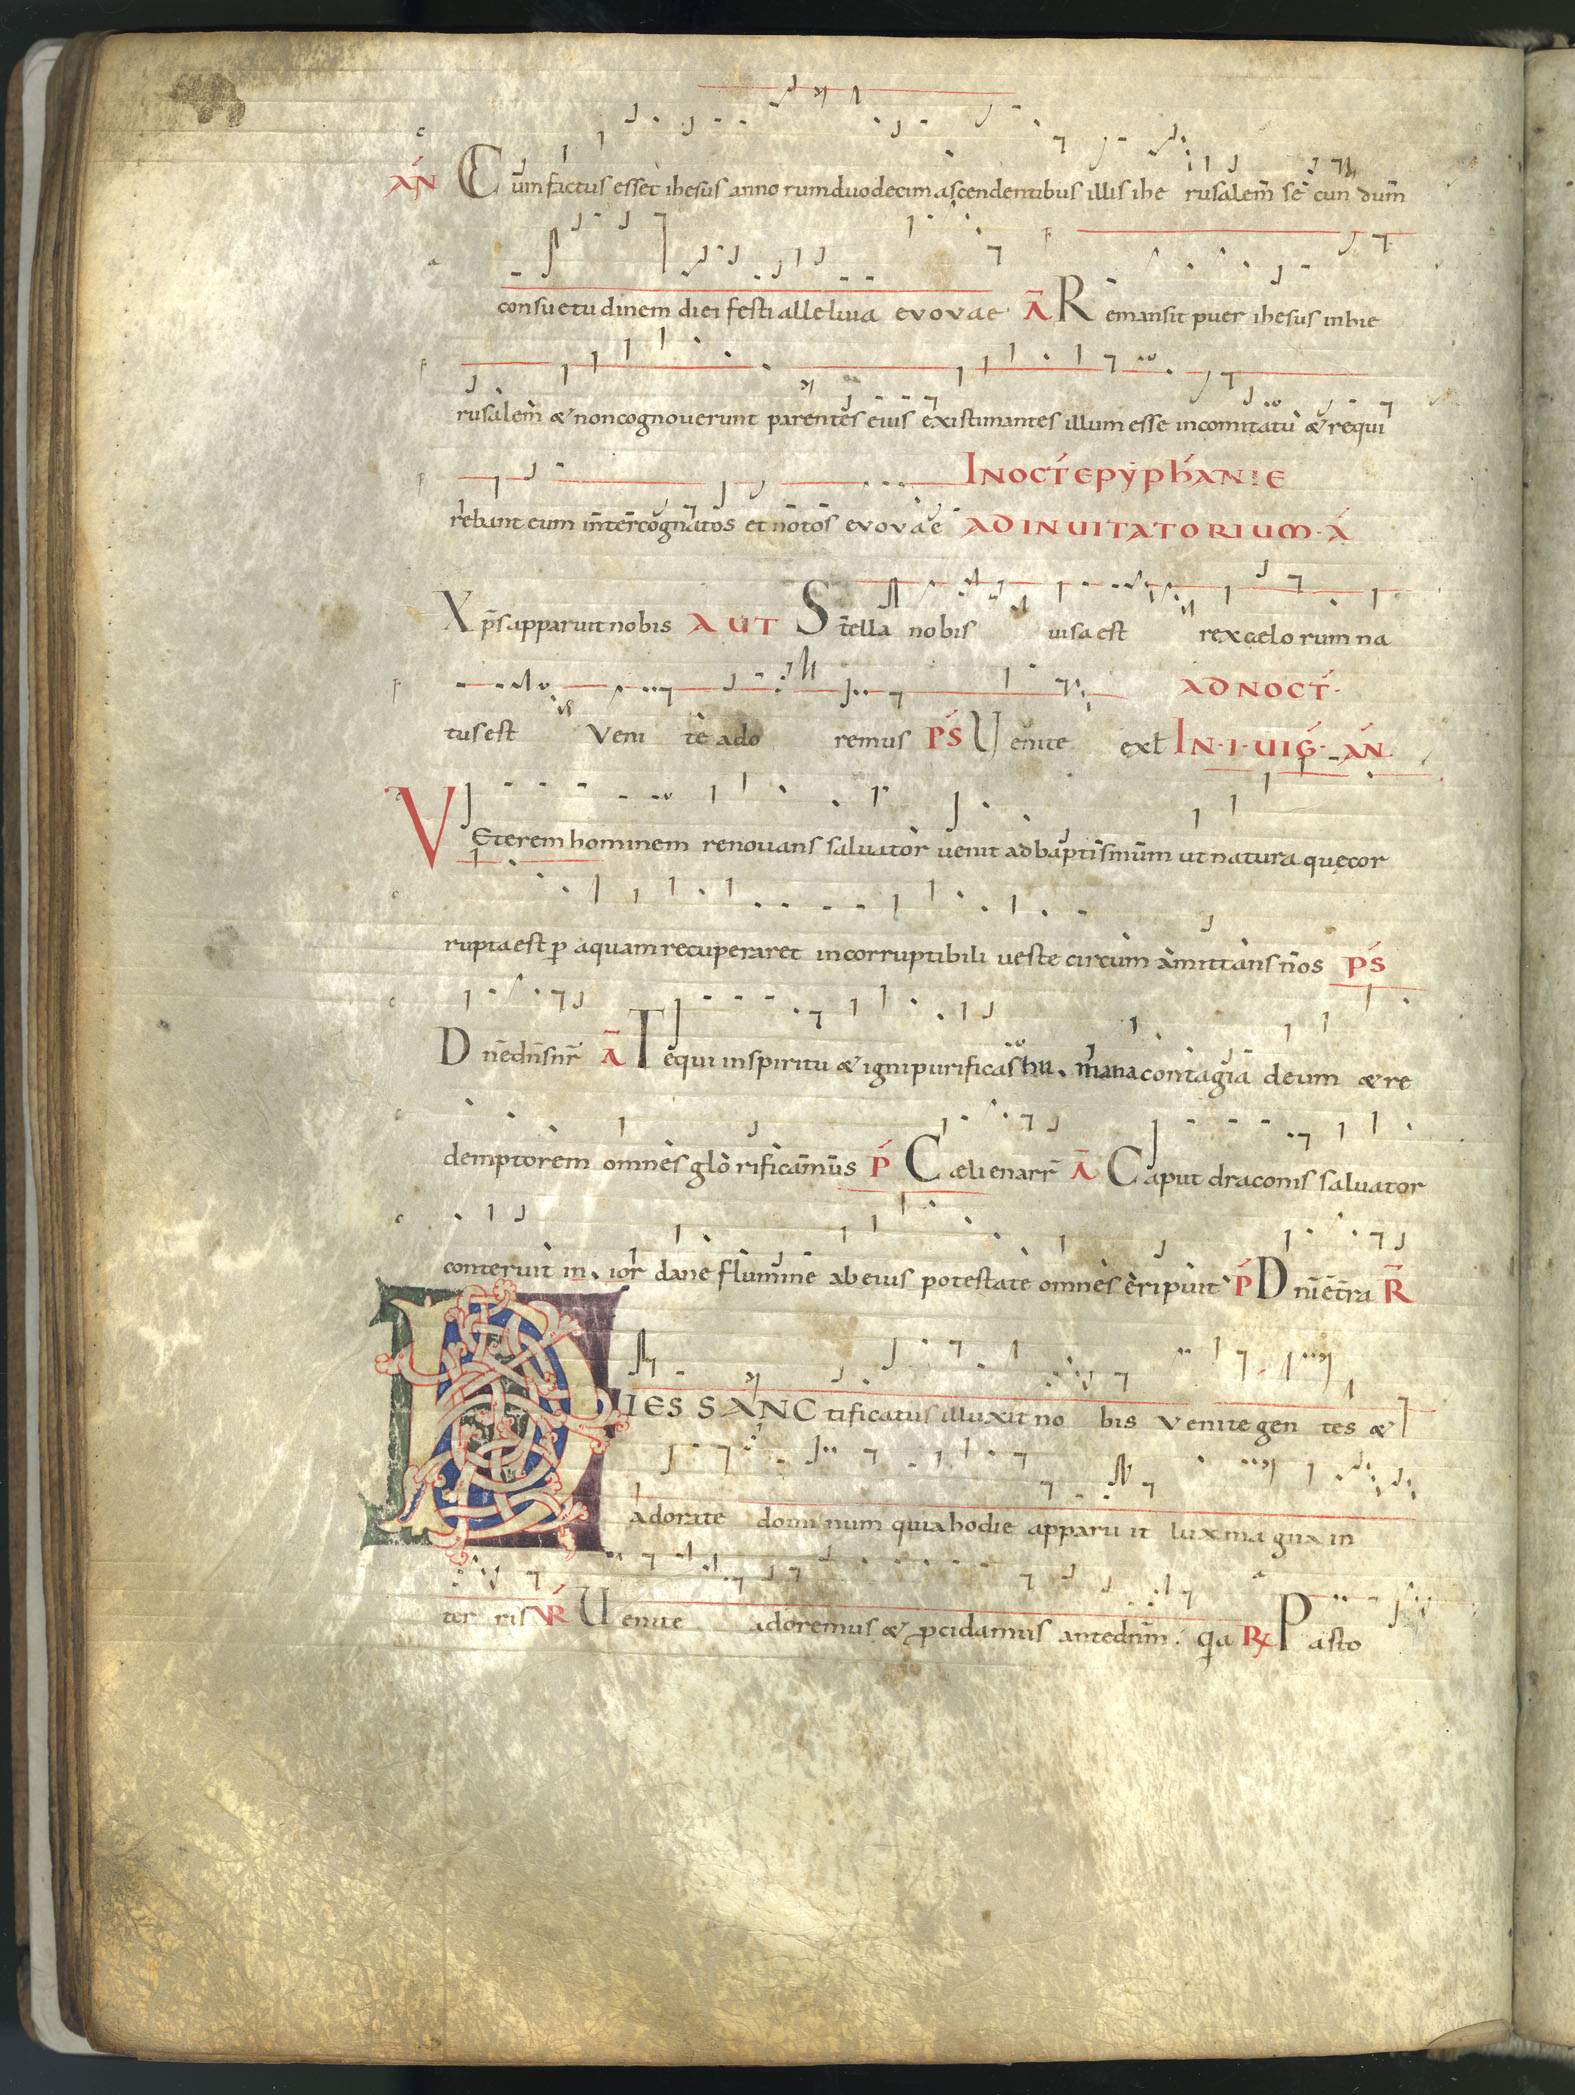 AN Cum factus esset ihesus anno rum duodecim ascendentibus illis ihe rusalem̄ se cun dum̄
consuetu dinem diei festi alleluia evovae Ā Remansit puer ihesus inhie
rusalem & non cognoverunt parentes eius existimantes illum esse incomitatu & requi
rebant eum inter cognatos et notos evovae IN OCT EPYPHANIE
AD INUITATORIUM · A
Xp̄s apparuit nobis AUT Stella nobis uisa est rex caelo rum na
tus est Veni te ado remus PS Uenite ext IN · I · UIG · AN
AD NOCT ·
VEterem hominem renouans saluator uenit ad baptismum ut natura quę cor
rupta est p aquam recuperaret incorruptibili ueste circum amittans nos PS
Dn̄e dn̄s nr̄ Ā Te qui in spiritu & igni purificas hu mana contagia deum & re
demptorem omnes glo rificamus P Cæli enarr̄ Ā Caput draconis saluator
conteruit in ior dane flumine ab eius potestate omnes eripuit P Dn̄i ē t̄ra R
DIES SANC tificatus illuxit no bis Venite gen tes &
adorate domi num quia hodie apparu it lux ma gna in
ter ris VR Uenite adoremus & procidamus ante dn̄m . qa R Pasto